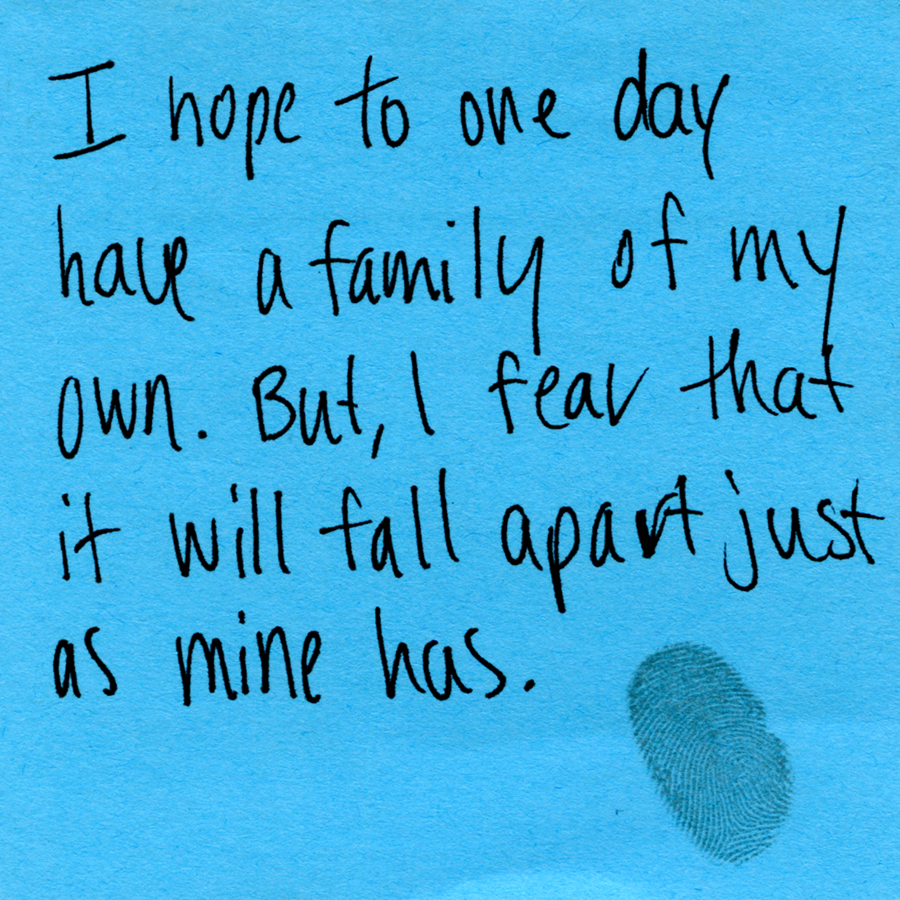 I hope to one day
have a family of my
own. But, I fear that
it will fall apart just
as mine has.